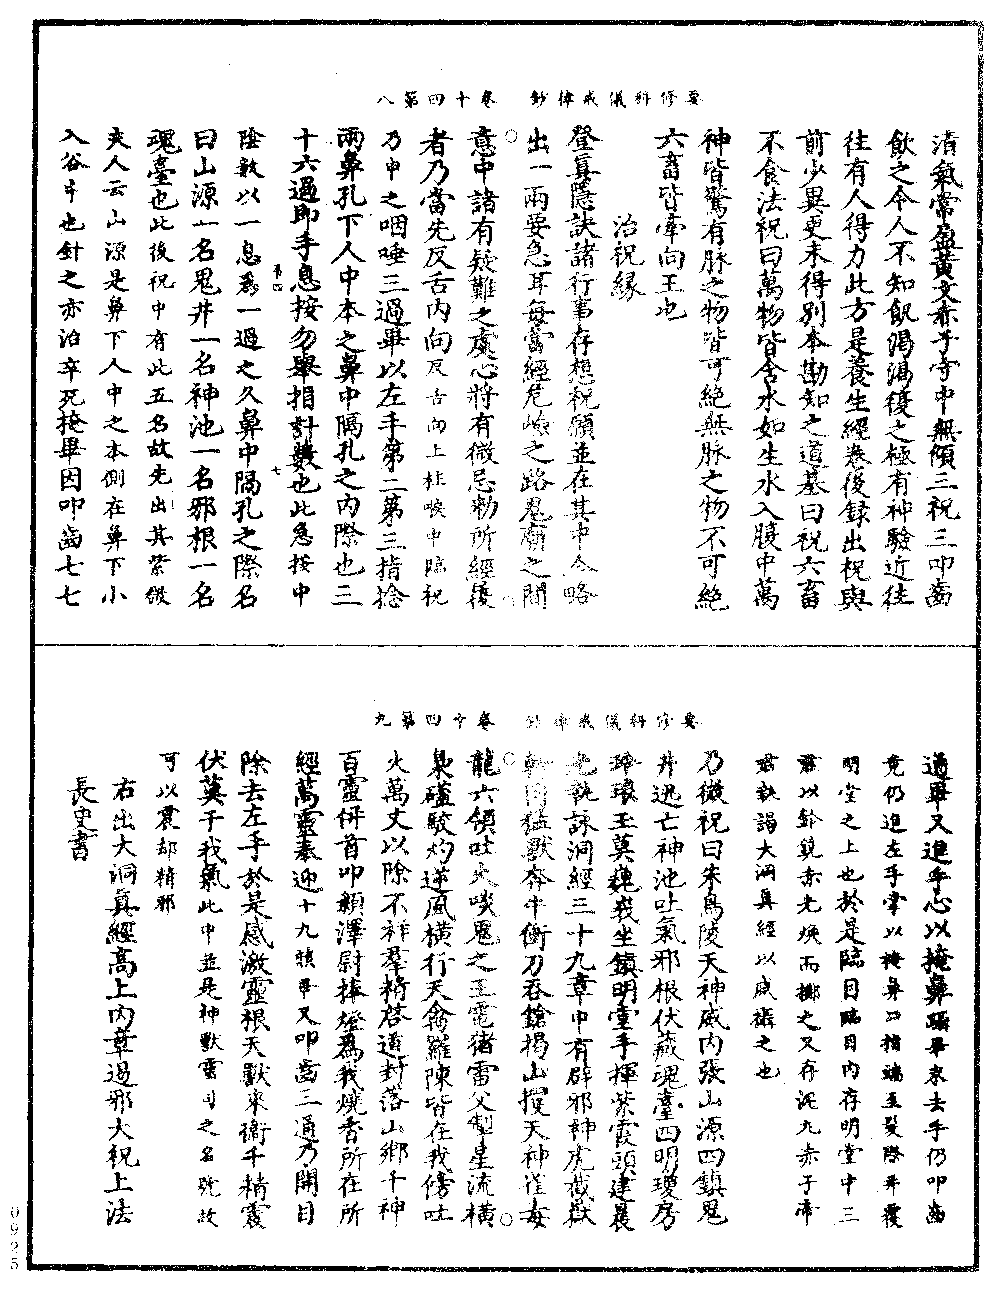 要修科儀戒律鈔　卷十四第八
清氣常盈黃文赤子守中無傾三祝三叩齒
飲之令人不知飢渴渴復之極有神驗近往
往有人得力此方是養生經卷後録出祝與
前少異更未得別本勘知之道墓曰祝六畜
不食法祝曰萬物皆含水如生水入腹中萬
神皆驚有脉之物皆可絶無脉之物不可絶
六畜皆牽向王也
治祝緣
登真隱訣諸行事存想祝願並在其中今略
出一兩要急耳每當經危嶮之路鬼廟之間
意中諸有疑難之處心將有微忌勑所經復
者乃當先反舌内向反舌向上柱喉中臨祝
乃申之咽唾三過畢以左手第二第三指捻
兩鼻孔下人中本之鼻中隔孔之内際也三
十六過即手急按勿舉指計數也此急按中
第四　七
陰數以一息爲一過之久鼻中隔孔之際名
曰山源一名鬼井一名神池一名邪根一名
魂臺也此後祝中有此五名故先出其紫微
夫人云山源是鼻下人中之本側在鼻下小
入谷中也針之亦治卒死掩畢因叩齒七七
要修科儀戒律鈔　卷十四第九
過畢又進手心以掩鼻躡畢來去手仍叩齒
竟仍進左手掌以掩鼻口指端至髮際并覆
明堂之上也於是臨目臨目内存明堂中三
君以鈴鏡赤光煥而擲之又存泥丸赤子帝
君執謁大洞真經以威攝之也
乃微祝曰朱鳥陵天神威内張山源四鎮鬼
井逃亡神池吐氣邪根伏藏魂臺四明瓊房
玲琅玉真巍峩坐鎮明堂手揮紫霞頭建晨
光執詠洞經三十九章中有辟邪神虎截嶽
斬岡猛獸奔牛銜刀吞鎗揭山攫天神雀毒
龍六領吐火啖鬼之王電猪雷父掣星流横
梟磕駮灼逆風横行天禽羅陳皆在我傍吐
火萬丈以除不祥羣精啓道封落山鄉千神
百靈併首叩顙澤尉捧燈爲我燒香所在所
經萬靈奉迎十九韻畢又叩齒三通乃開目
除去左手於是感激靈根天獸來衛千精震
伏莫干我氣此中並是神獸靈司之名號故
可以震却精邪
右出大洞真經高上内章遏邪大祝上法
長史書
0925